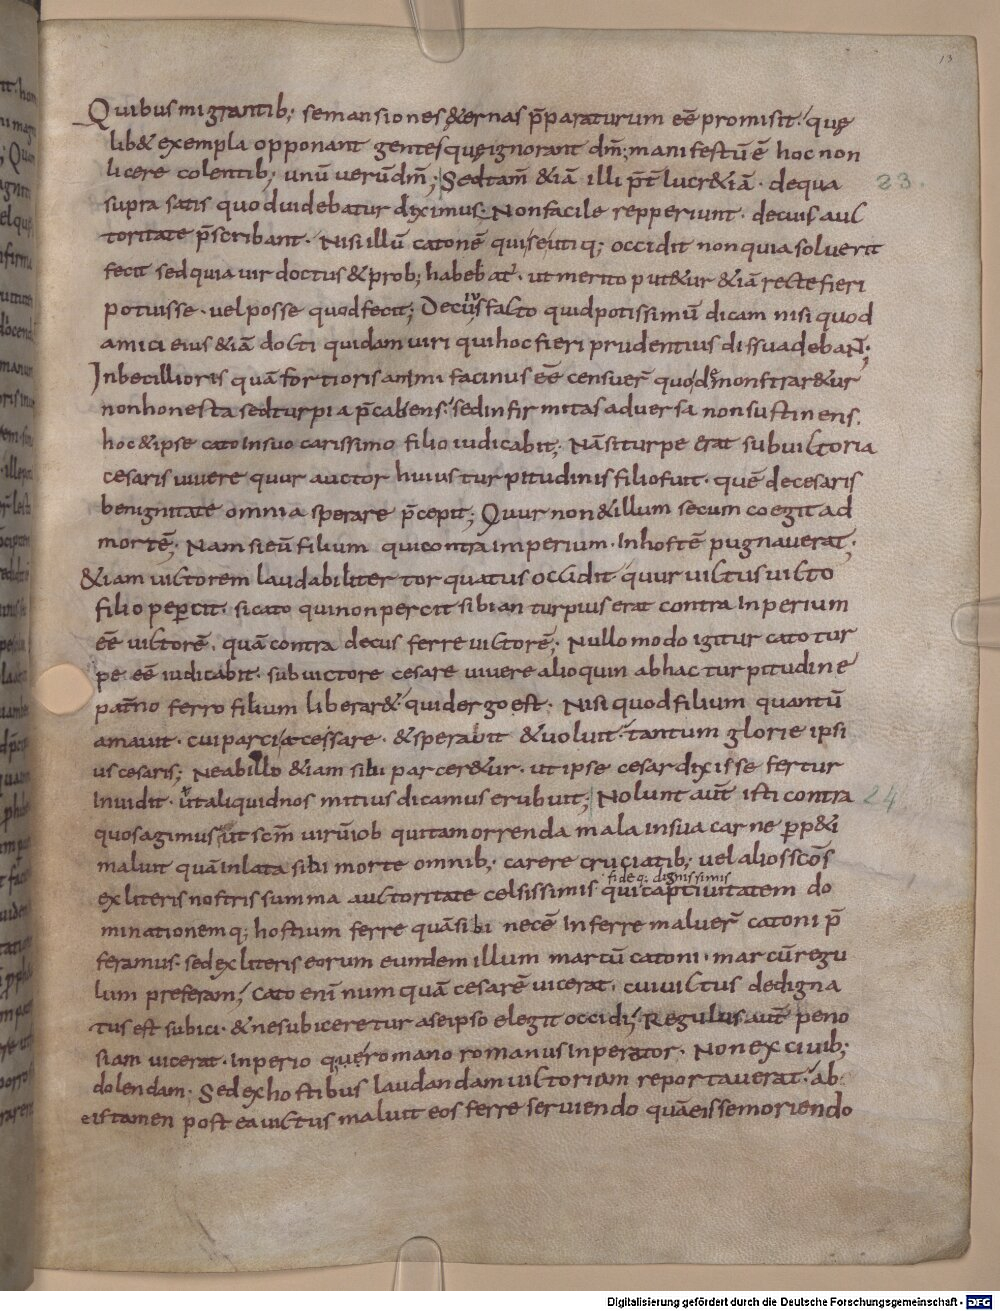 13
Quibus migrantib; se mansiones &ernas p̄paraturum eē promisit. que
lib& exempla opponant gentes que ignorant dm̄; manifestū ē hoc non
licere colentib; unū uerū dm̄; Sed tam̄ &iā illi p̄t lucr&iā · de qua 23.
supra satis quod uidebatur diximus. Non facile repperiunt · de cuius auc
toritate p̄scribant. Nisi illū catonē qui se utiq; occidit non quia solus erit
fecit sed quia uir doctus & prob; habebat̄ · ut merito put&ur &iā recte fieri
potuisse · uel posse quod fecit; De cuius facto quid potissimū dicam nisi quod
amici eius &iā docti quidam uiri qui hoc fieri prudentius dissuadebant;
Inbecillioris quā fortioris animi facinus eē censuer̄ quo dem̄onstrar&ur
non honesta sed turpia p̄cabens. sed infirmitas aduersa non sustinens.
hoc & ipse cato In suo carissimo filio iudicabit; Nā si turpe erat sub uictoria
cesaris uiuere quur auctor huius turpitudinis filio fuit · quē de cesaris
benignitate omnia sperare p̄cepit; Quur non & illum secum coegit ad
mortē; Nam si eū filium qui contra imperium · In hostē pugnauerat;
&iam uictorem laudabiliter torquatus occidit quur uictus uicto
filio pepercit. si cato qui non percit sibi an turpius erat contra Inperium
eē uictorē. quā contra decus ferre uictorē; Nullo modo igitur cato tur
pe eē iudicabit · sub uictore cesare uiuere alioquin ab hac turpitudine
pat̄no ferro filium liberar& quid ergo est · Nisi quod filium quantū
amauit · cui parci a cessare · & sperabit & uoluit. tantum glorie ipsi
us cesaris; Ne ab illo &iam sibi parcer&ur · ut ipse cesar dixisse fertur
Inuidit · ut aliquid nos mitius dicamus erubuit; Nolunt aūt isti contra 24.
quos agimus ut scm̄ uirū iob qui tam orrenda mala in sua carne p̄p&i
maluit quā inlata sibi morte omnib; carere cruciatib; uel alios scōs
fide q; dignissimis
ex literis nostris summa auctoritate celsissimis qui captiuitatem do
minationemq; hostium ferre quā sibi necē Inferre maluer̄ catoni p̄
feramus. sed ex literis eorum eundem illum marcū catoni · marcū regu
lum preferam; Cato enī numquā cesarē uicerat · cui uictus dedigna
tus est subici · & ne subiceretur a se ipso elegit occidi; Regulus aūt peno
s iam uicerat · Inperio que romano romanus Inperator · Non ex ciuib;
dolendam · Sed ex hostibus laudandam uictoriam reportauerat · ab
eis tamen postea uictus maluit eos ferre seruiendo quā eis se moriendo
Digitalisierung gefördert durch die Deutsche Forschungsgemeinschaft - DFG